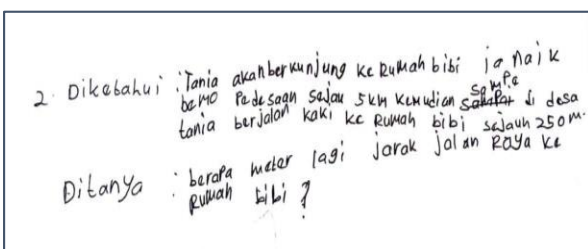 2. Diketahui : Tania akan berkunjung ke Rumah bibi ia naik
bemo Pedesaan sejau 5km kemudian sampe di desa
tania berjalan kaki ke Rumah bibi sejauh 250m.
Ditanya : berapa meter lagi jarak jalan Raya ke
Rumah bibi ?